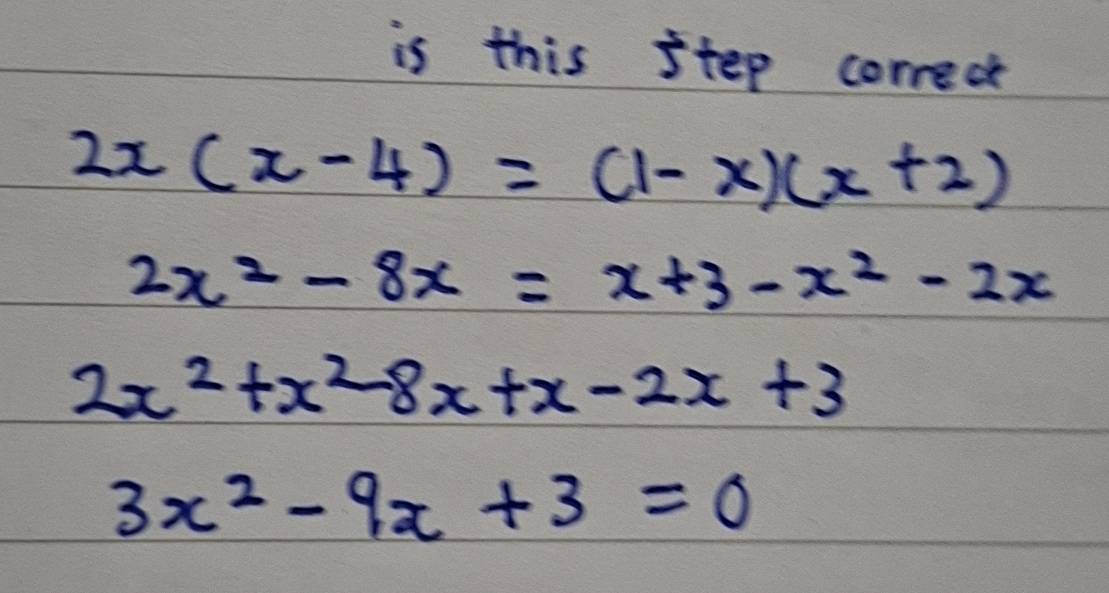 is this step correct
2x(x-4) = (1-x)(x+2)
2x² - 8x = x+3-x² - 2x
2x²+x²-8x+x-2x +3
3x² - 9x +3 =0